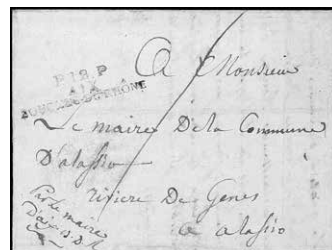 P. 12. P.
AIX
BOUCHES-DU-RHÔNE
A Monsieur
Le maire De la Commune
D'alassio
riviere De Genes
a alassio
Par le maire
D'aix